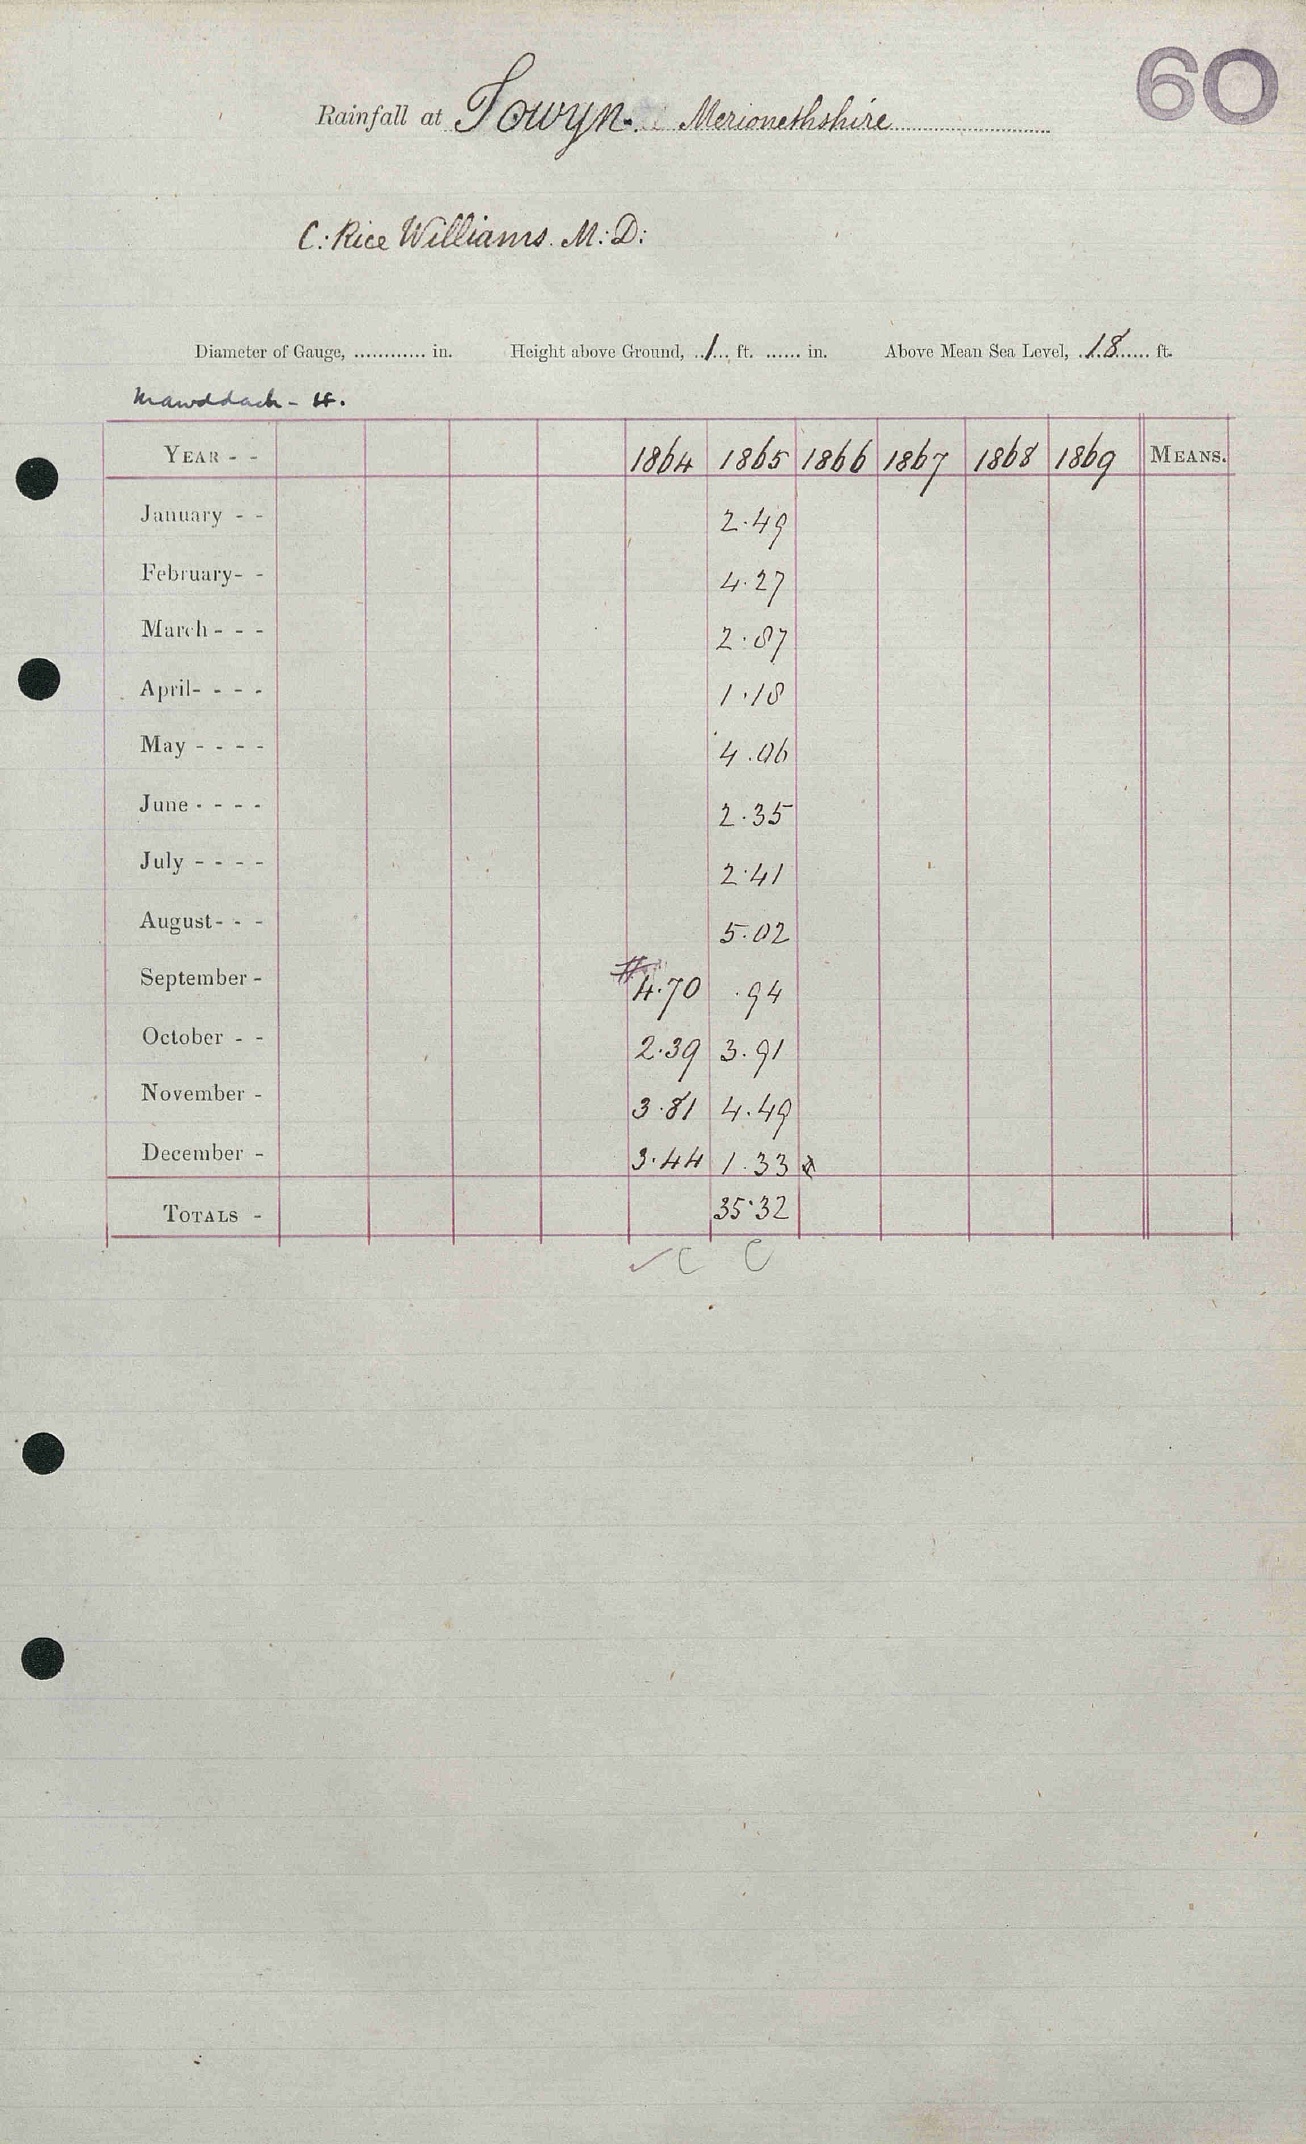 60
Rainfall at Towyn. Merionethshire
C: Rice Williams. M: D:
Diameter of Gauge, ............ in. Height above Ground, ..1... ft. ...... in. Above Mean Sea Level, ..18...... ft.
Mawddach - H.
YEAR - - 1864 1865 1866 1867 1868 1869 MEANS.
January - - 2.49
February- - 4.27
March - - - 2.87
April- - - - 1.18
May - - - - 4.06
June - - - - 2.35
July - - - - 2.41
August- - - 5.02
September - 4.70 .94
October - - 2.39 3.91
November - 3.81 4.49
December - 3.44 1.33
TOTALS - 35.32
✓ C C